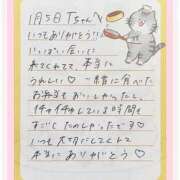 1月5日 Tちゃん
いつもありがとう!
いっぱい会いに
来てくれてて、本当に
うれしい♡ 一緒に食べた
お弁当もおいしかったし、
イチャイチャしている時間も
すごくたのしかったです♡
いつも大切にしてくれて
本当にありがとう♡